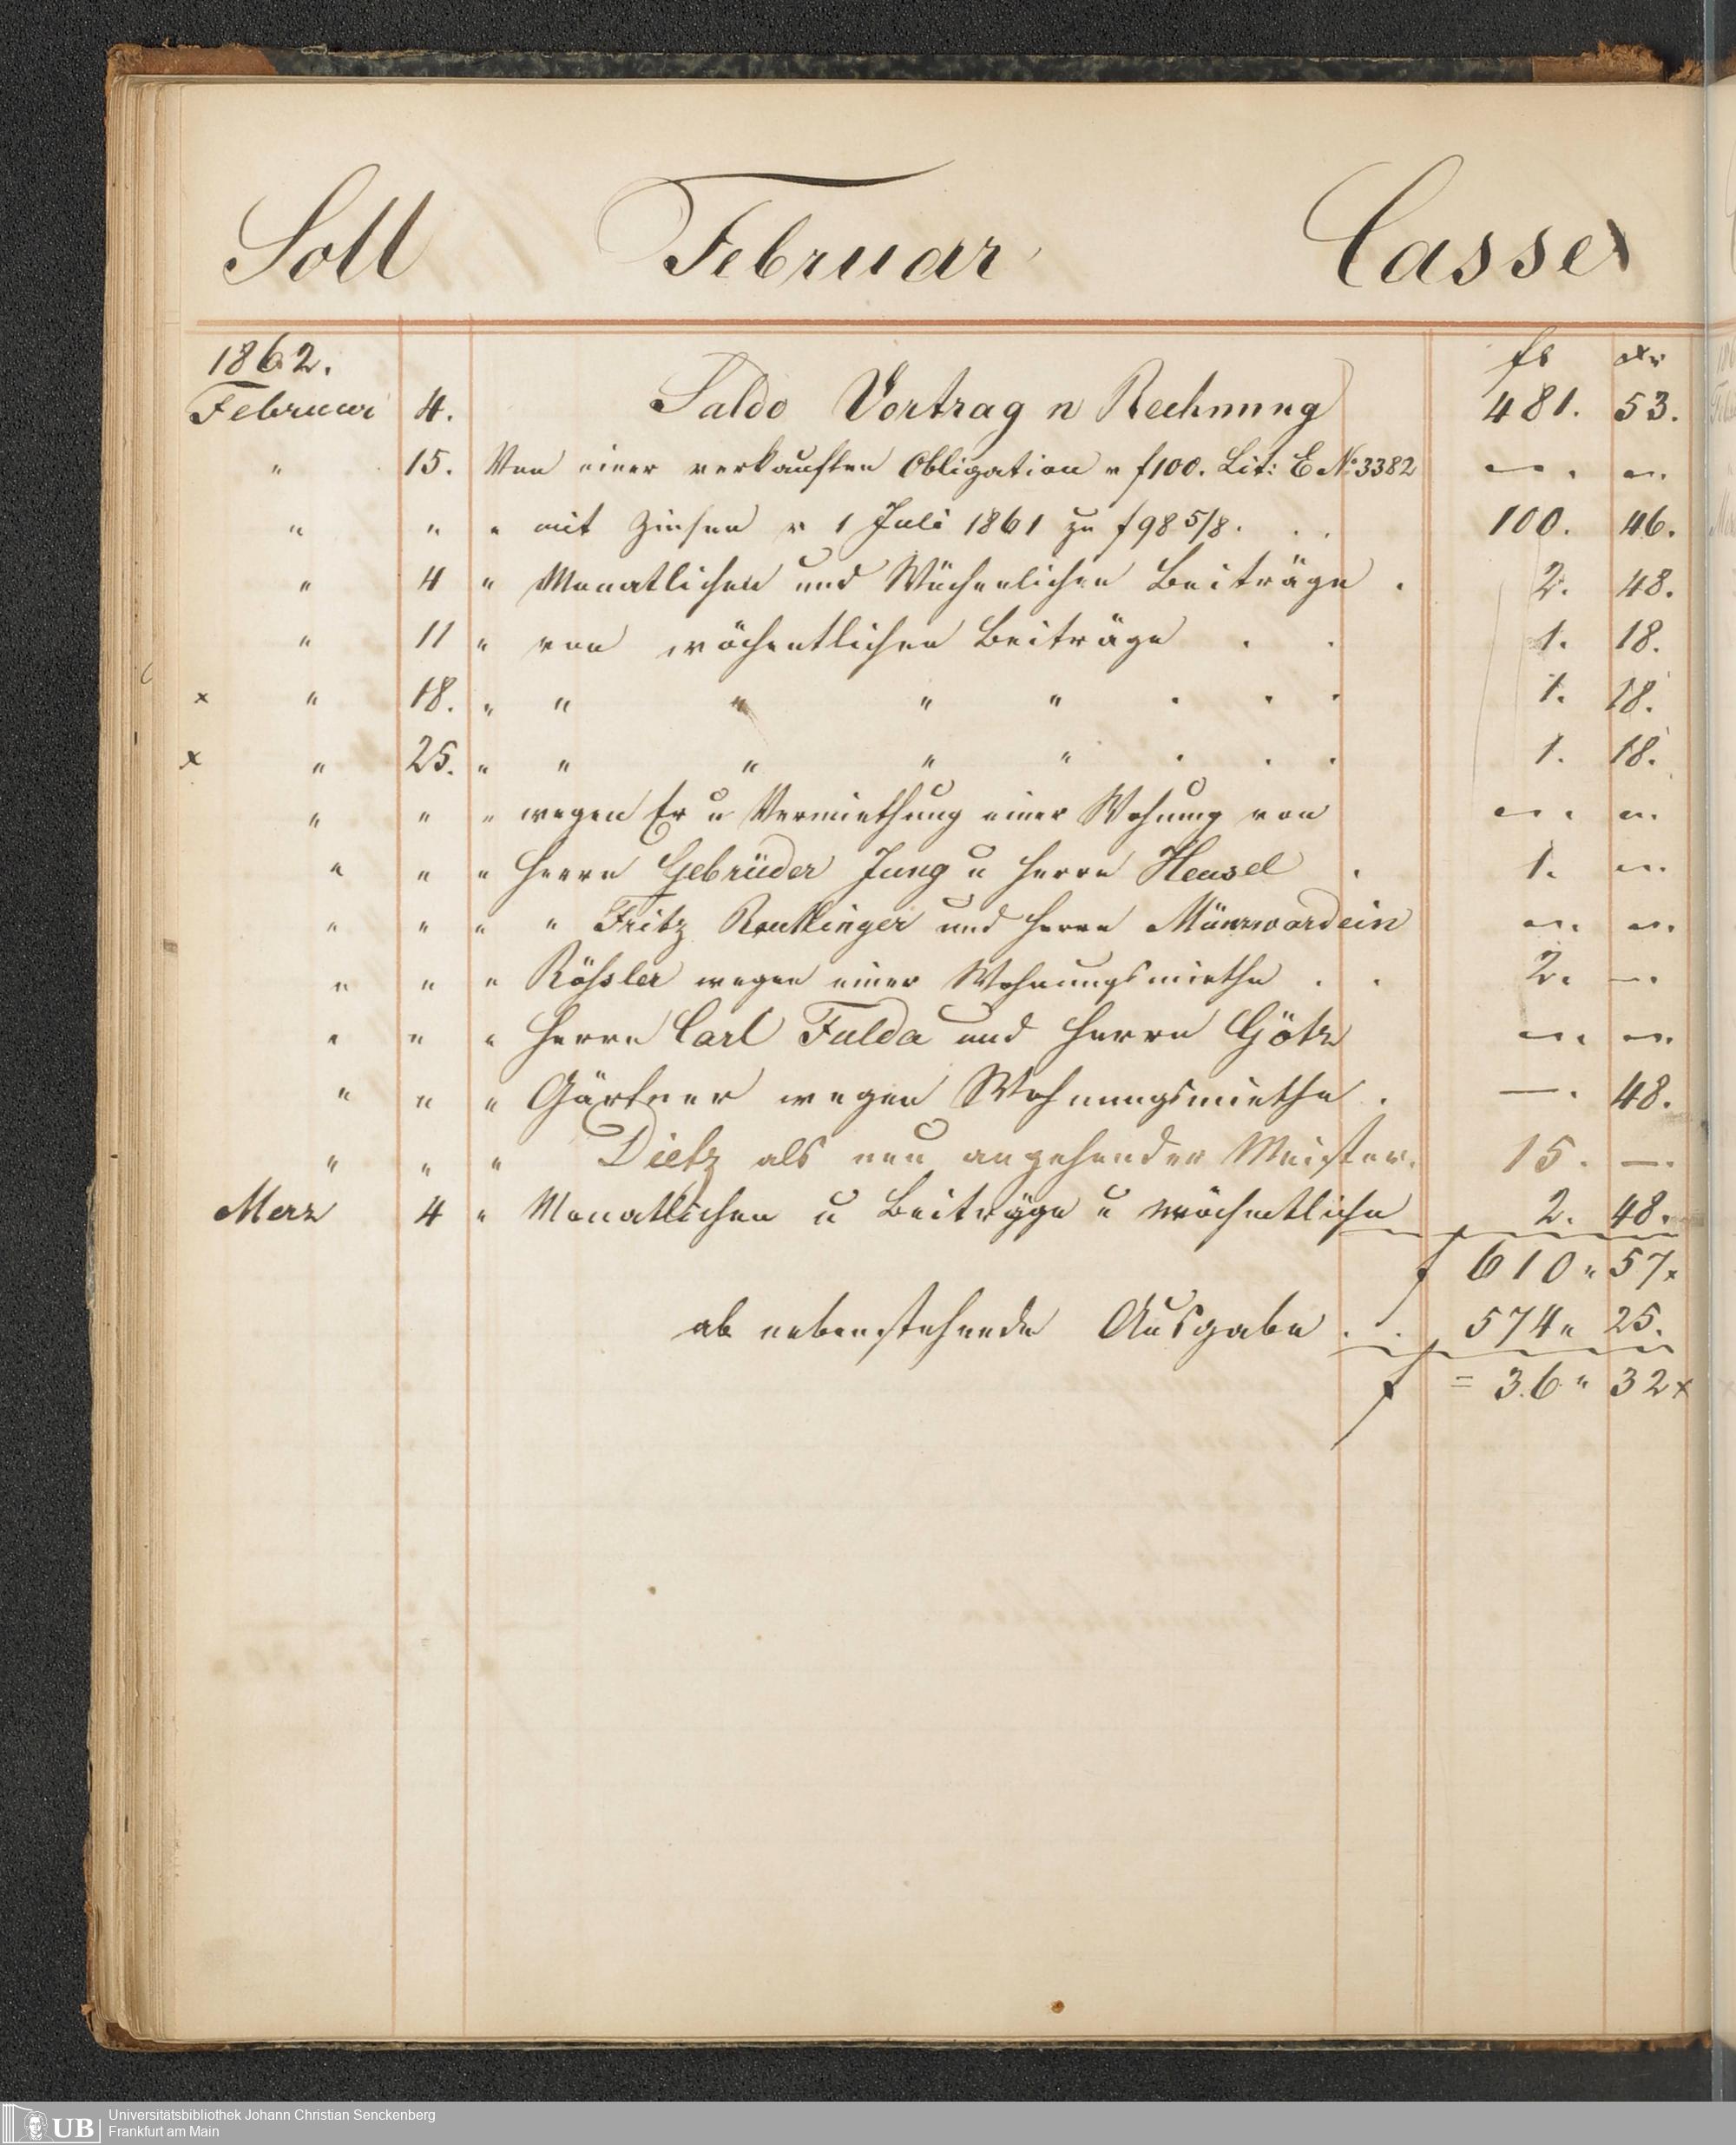 Soll Februar Casse
1862. fl xr
Februar 4. Saldo Vortrag n Rechnung 481. 53.
" 15. Von einer verkauften Obligation v f100. Lit: E No 3382 — . — .
" " " mit Zinsen v 1 Juli 1861 zu f98 5/8 . . . 100. 46.
" 4 " Monatlichen und Wöchenlichen Beiträge . 2. 48.
" 11 " von wöchentlichen Beiträge . . 1. 18.
x " 18. " " " " " . . . 1. 18.
x " 25. " " " " " . . . 1. 18.
" " " wegen Er u Vermiethung einer Wohung von — . — .
" " " Herrn Gebrüder Jung u Herrn Hensel . 1. — .
" " " " Fritz Reutlinger und Herrn Münzwardein — . — .
" " " Rößler wegen einer Wohnungsmiethe . . 2. — .
" " " Herrn Carl Fulda und Herrn Götz — . — .
" " " Gärtner wegen Wohnungsmiethe . — . 48.
" " " Dietz als neu angehender Meister. 15. — .
Merz 4 " Monatlichen u Beiträge u wöchentliche 2. 48.
f 610 " 57 x
ab nebenstehende Ausgabe . . 574 " 25.
f = 36 " 32 x
UB Universitätsbibliothek Johann Christian Senckenberg
Frankfurt am Main